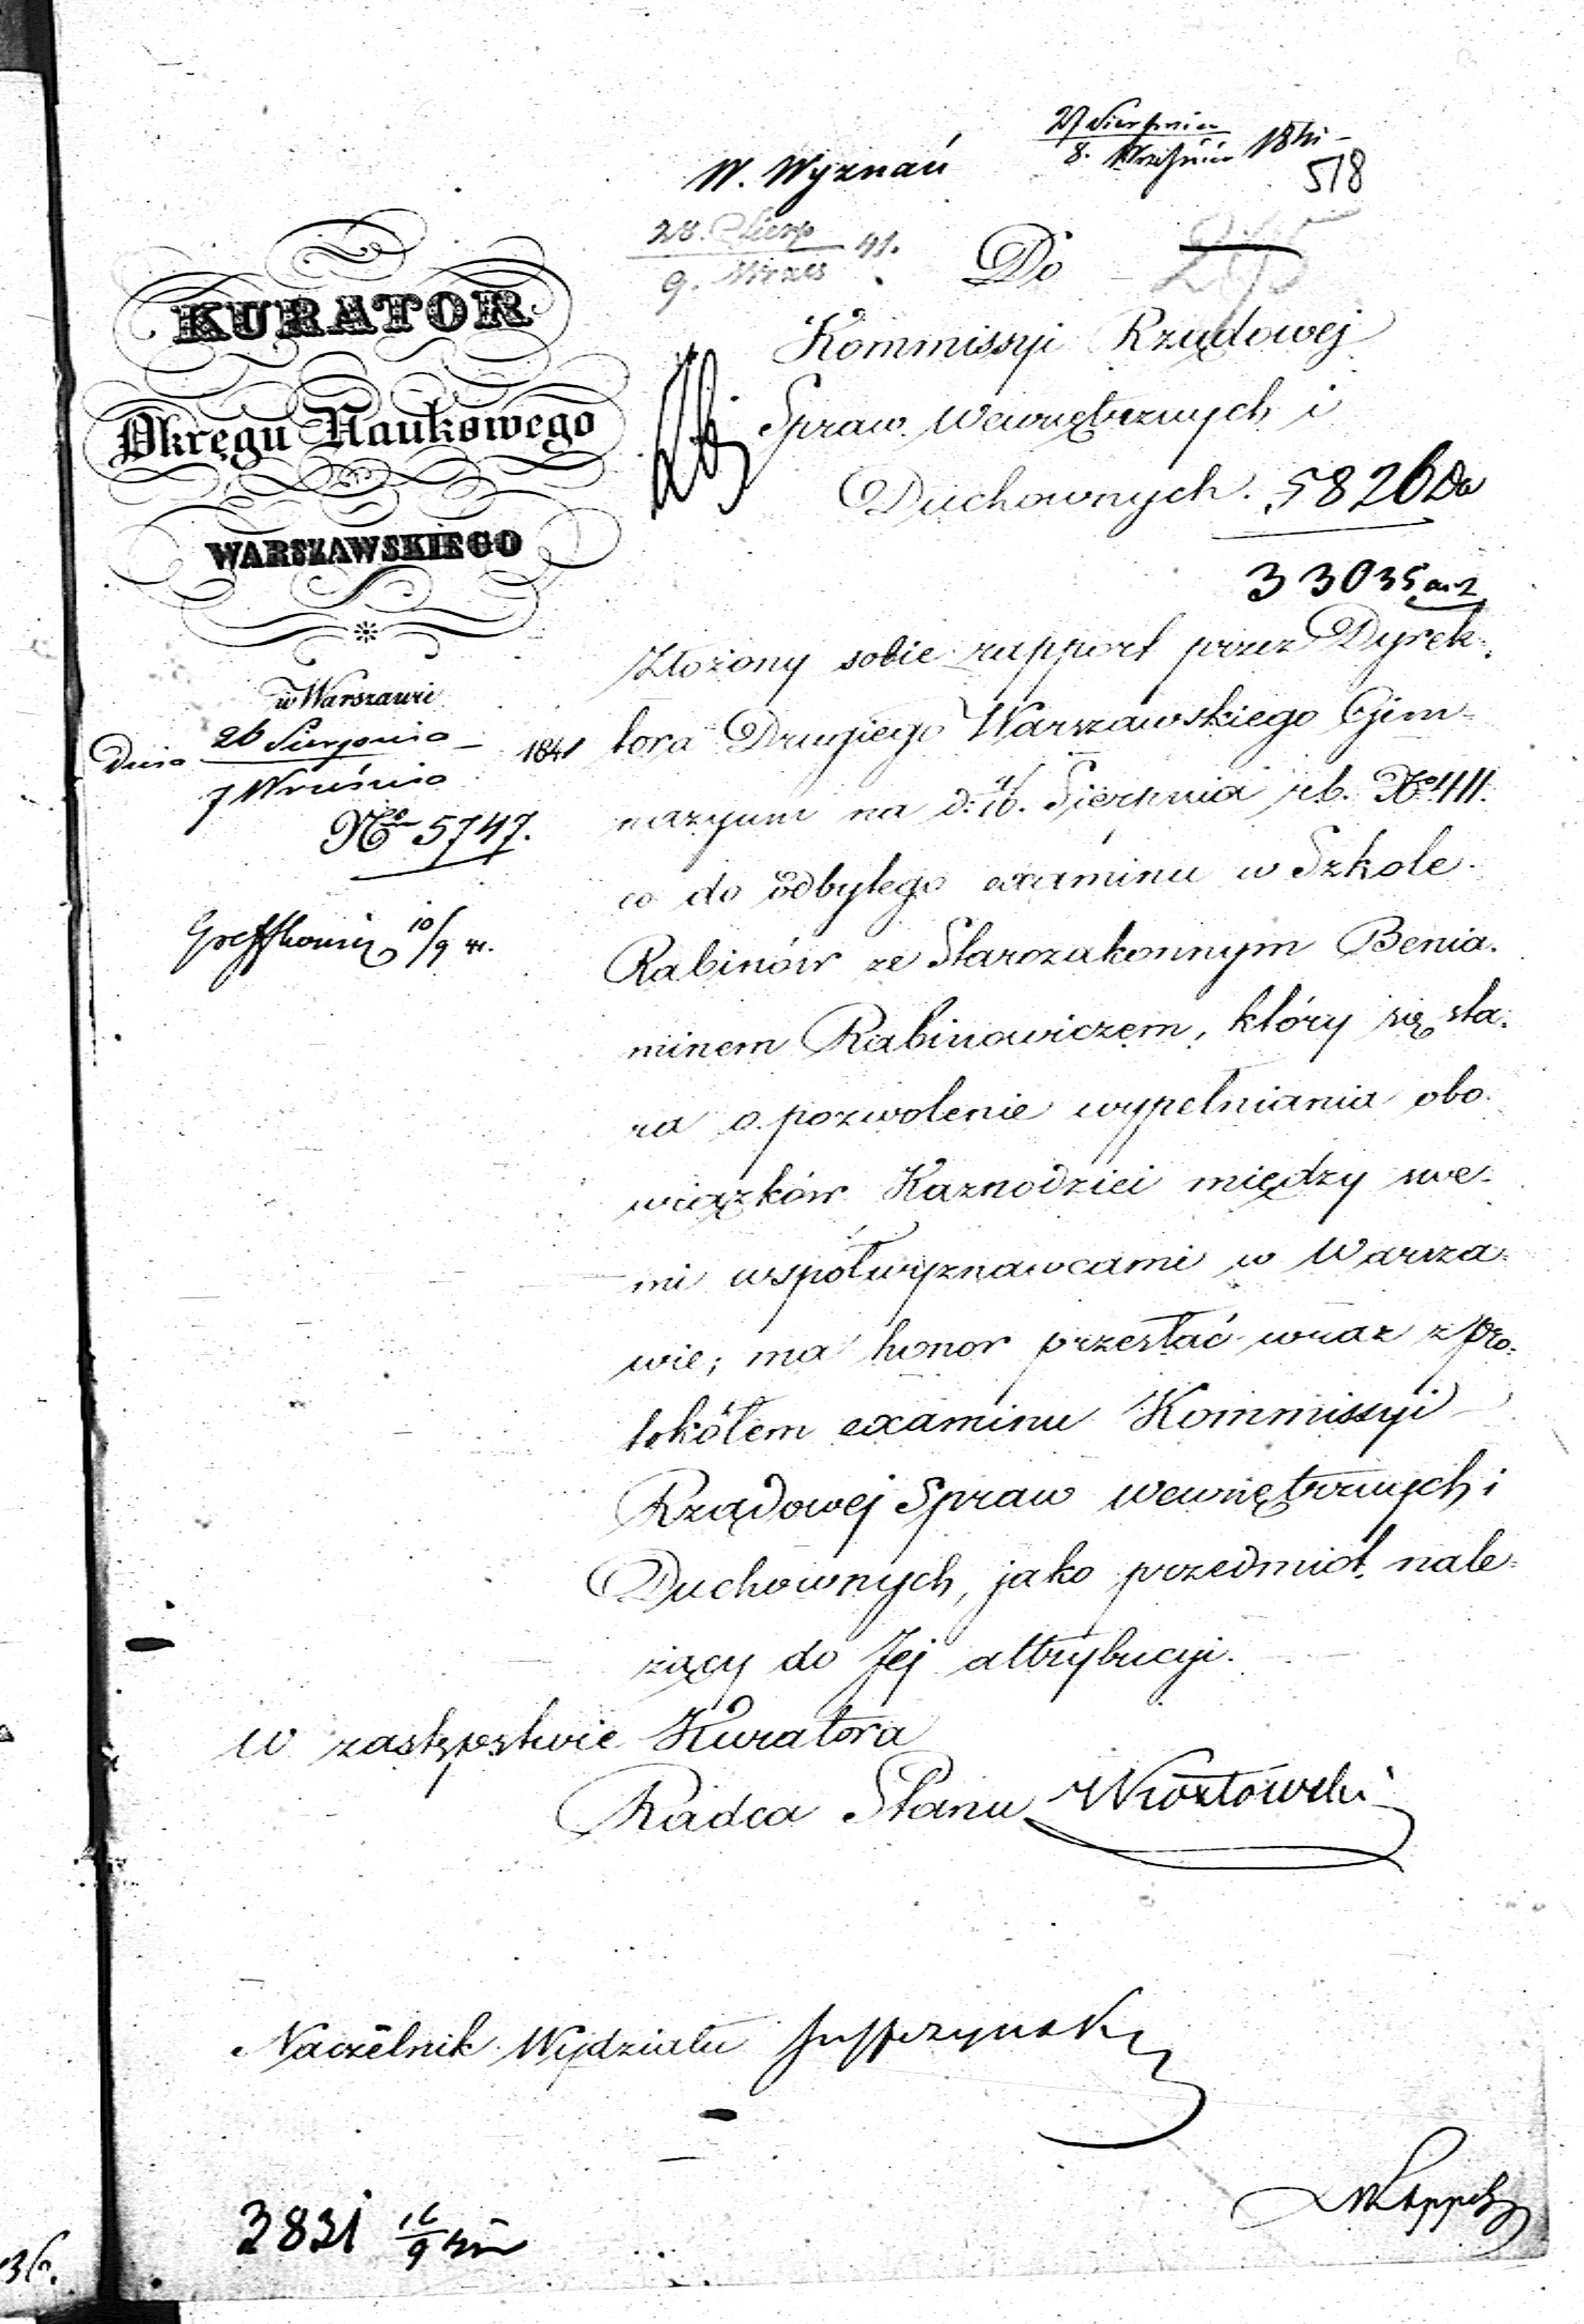 W. Wyznań
27 Sierpnia
8. Września 1841 -
518
28. Sierp
9. Wrzes 41.
Do
KURATOR
Okręgu Naukowego
WARSZAWSKIEGO
Kommissyi Rządowej
Spraw Wewnętrznych i
Duchownych.
5826
33035
w Warszawie
Dnia 26 Sierpnia
7 Września 1841
No 5747.
10/9 41.
Złożony sobie rapport przez Dyrek-
tora Drugiego Warszawskiego Gim-
nazyum na d. 4/16. Sierpnia r.b. No 411.
co do odbytego examinu w Szkole
Rabinów ze Starozakonnym Benia-
minem Rabinowiczem, który się sta-
ra o pozwolenie wypełniania obo-
wiązków Kaznodziei między swe-
mi współwyznawcami w Warsza-
wie; ma honor przesłać wraz z pro-
tokółem examinu Kommissyi
Rządowej Spraw Wewnętrznych i
Duchownych, jako przedmiot nale-
żący do Jej attrybucyi.
W zastępstwie Kuratora
Radca Stanu
Naczelnik Wydziału
3831
36.